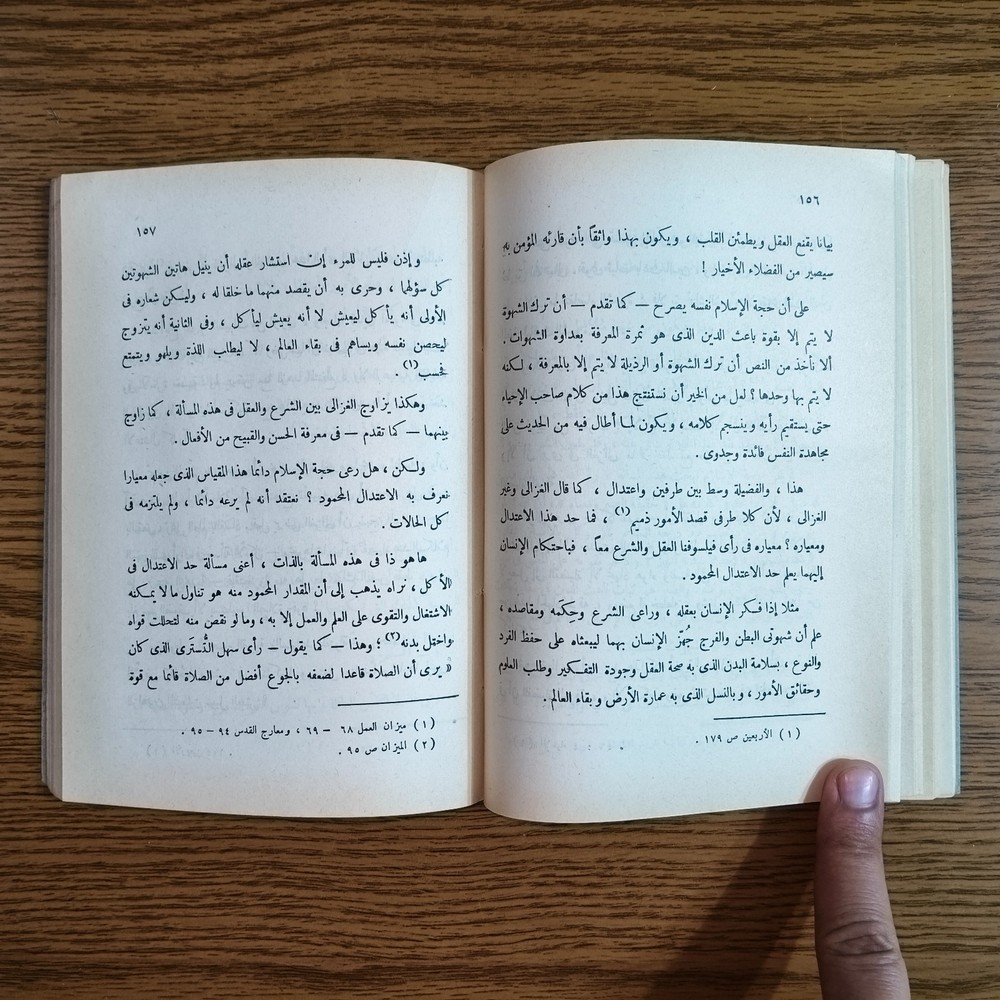 ١٥٦
بيانا يقنع العقل ويطمئن القلب ، ويكون بهذا واثقاً بأن قارئه المؤمن به
سيصير من الفضلاء الأخيار !
على أن حجة الإسلام نفسه يصرح — كما تقدم — أن ترك الشهوة
لا يتم إلا بقوة باعث الدين الذى هو ثمرة المعرفة بعداوة الشهوات .
ألا نأخذ من النص أن ترك الشهوة أو الرذيلة لا يتم إلا بالمعرفة ، لكنه
لا يتم بها وحدها ؟ لعل من الخير أن نستنتج هذا من كلام صاحب الإحياء
حتى يستقيم رأيه وينسجم كلامه ، ويكون لما أطال فيه من الحديث على
مجاهدة النفس فائدة وجدوى .
هذا ، والفضيلة وسط بين طرفين واعتدال ، كما قال الغزالى وغير
الغزالى ، لأن كلا طرفى قصد الأمور ذميم (١) ، فما حد هذا الاعتدال
ومعياره ؟ معياره فى رأى فيلسوفنا العقل والشرع معاً ، فباحتكام الإنسان
إليهما يعلم حد الاعتدال المحمود .
مثلا إذا فكر الإنسان بعقله ، وراعى الشرع وحِكَمه ومقاصده ،
علم أن شهوتى البطن والفرج جُهّز الإنسان بهما ليبعثاه على حفظ الفرد
والنوع ، بسلامة البدن الذى به صحة العقل وجودة التفكير وطلب العلوم
وحقائق الأمور ، وبالنسل الذى به عمارة الأرض وبقاء العالم .
(١) الأربعين ص ١٧٩ .
١٥٧
وإذن فليس للمرء إن استشار عقله أن ينيل هاتين الشهوتين
كل سؤلها ، وحرى به أن يقصد منهما ما خلقا له ، وليكن شعاره فى
الأولى أنه يأكل ليعيش لا أنه يعيش ليأكل ، وفى الثانية أنه يتزوج
ليحصن نفسه ويساهم فى بقاء العالم ، لا ليطلب اللذة ويلهو ويتمتع
فحسب (١) .
وهكذا يزاوج الغزالى بين الشرع والعقل فى هذه المسألة ، كما زاوج
بينهما — كما تقدم — فى معرفة الحسن والقبيح من الأفعال .
ولكن ، هل رعى حجة الإسلام دائما هذا المقياس الذى جعله معيارا
نعرف به الاعتدال المحمود ؟ نعتقد أنه لم يرعه دائما ، ولم يلتزمه فى
كل الحالات .
ها هو ذا فى هذه المسألة بالذات ، أعنى مسألة حد الاعتدال فى
الأكل ، نراه يذهب إلى أن المقدار المحمود منه هو تناول ما لا يمكنه
الاشتغال والتقوى على العلم والعمل إلا به ، وما لو نقص منه لتحللت قواه
واختل بدنه (٢) ؛ وهذا — كما يقول — رأى سهل التُّسترى الذى كان
« يرى أن الصلاة قاعدا لضعفه بالجوع أفضل من الصلاة قائما مع قوة
(١) ميزان العمل ٦٨ — ٦٩ ، ومعارج القدس ٩٤ — ٩٥ .
(٢) الميزان ص ٩٥ .